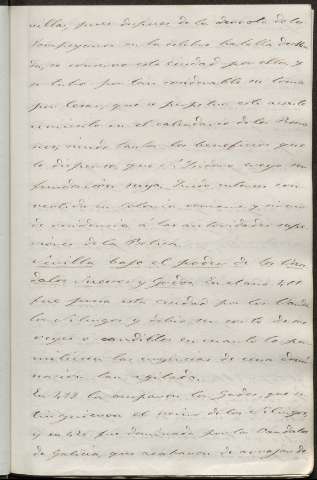 villa, pues despues de la derrota de los
Pompeyanos en la célebre batalla de Mun
da, se conservó esta ciudad por ellos, y
se tubo por tan considerable su toma
por Cesar, que se perpetuó este aconte
cimiento en el calendario de los Roma
nos, siendo tantos los beneficios que
le dispensó, que S. Isidoro creyó su
fundacion suya. Quedó entonces con
vertida en colonia romana y sirvió
de residencia á las autoridades supe
riores de la Bética.
Sevilla bajo el poder de los Ván
dalos, Suevos y Godos. En el año 411
fue presa esta ciudad por los Vánda
los Silingos y debió ser corte de sus
reyes o caudillos en cuanto lo per
mitieran las urgencias de una domi
nacion tan agitada.
En 418 la ocuparon los Godos, que es
tinguieron el reino de los Silingos,
y en 422 fue dominada por los Vandalos
de Galicia, que acababan de arrojar de